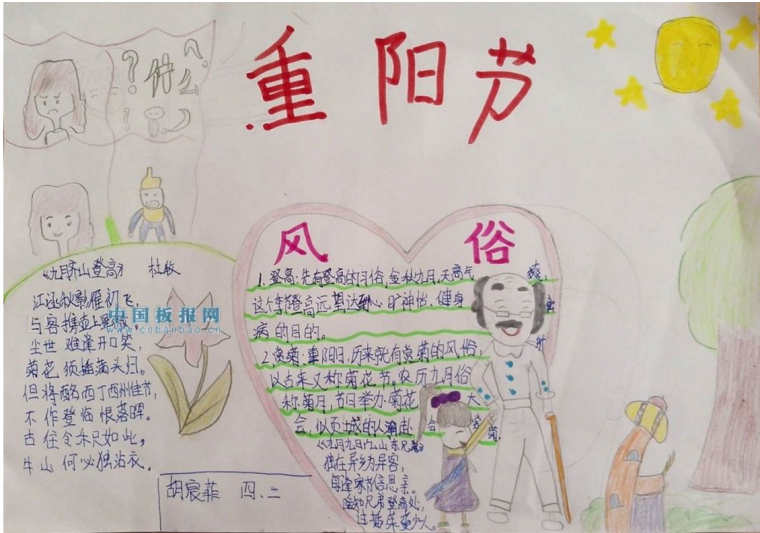 重阳节
什么
风俗
《九月齐山登高》 杜牧
江涵秋影雁初飞,
与客携壶上
尘世难逢开口笑,
菊花须插满头归。
但将酩酊酉州佳节,
不作登临恨落晖。
古往今来只如此,
牛山何必独沾衣.
中国板报网
www.cnbanbao.cn
1.登高:先有登高的习俗,金秋九月,天高气
这个季登高远望达到心旷神怡、健身
病的目的。
2.赏菊:重阳日,历来就有赏菊的风俗,
以古来又称菊花节。农历九月俗
称菊月,节日举办菊花 大
会,倾城的人潮赴 会 赏菊。
《九月九日忆山东兄弟》
独在异乡为异客,
每逢佳节倍思亲。
遥知兄弟登高处,
遍插茱萸少人。
胡宸菲 四.二